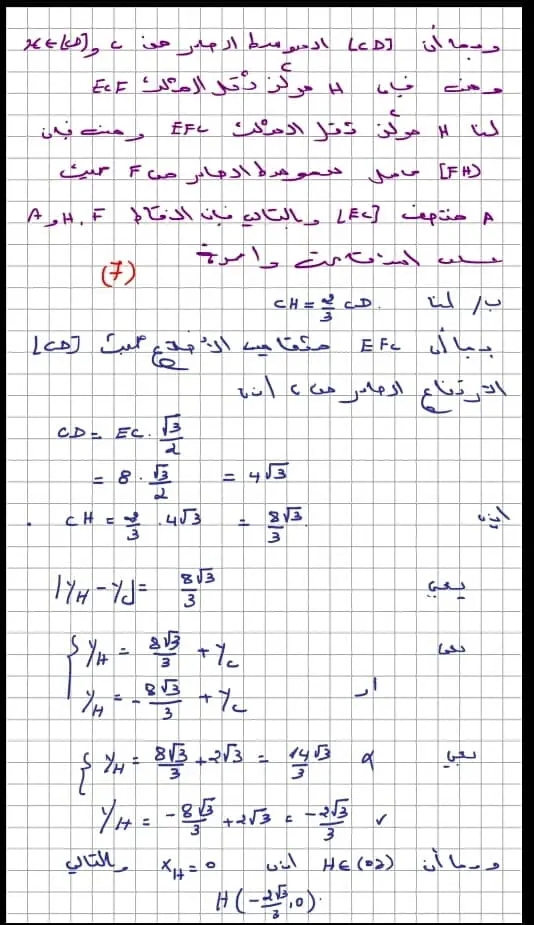 وبما أن [CD] الموسط الصادر من C و H∈[CD]
ومنه فإن H مركز ثقل المثلث ECF
لنا H مركز ثقل المثلث EFC ومنه فإن
[FH) حامل للموسط الصادر من F حيث
A منتصف [EC] وبالتالي فإن النقاط F, H و A
على استقامة واحدة
(7)
ب/ لنا CH = 2/3 CD.
بما أن EFC متقايس الأضلاع حيث [CD]
الارتفاع الصادر من C إذن
CD = EC · √3/2
= 8 · √3/2 = 4√3
إذن CH = 2/3 · 4√3 = 8√3/3.
يعني |yH - yC| = 8√3/3
يعني { yH = 8√3/3 + yC
أو yH = -8√3/3 + yC
يعني { yH = 8√3/3 + 2√3 = 14√3/3
yH = -8√3/3 + 2√3 = -2√3/3 ✓
وبما أن H∈(OJ) إذن xH = 0 وبالتالي
H(-2√3/3, 0).